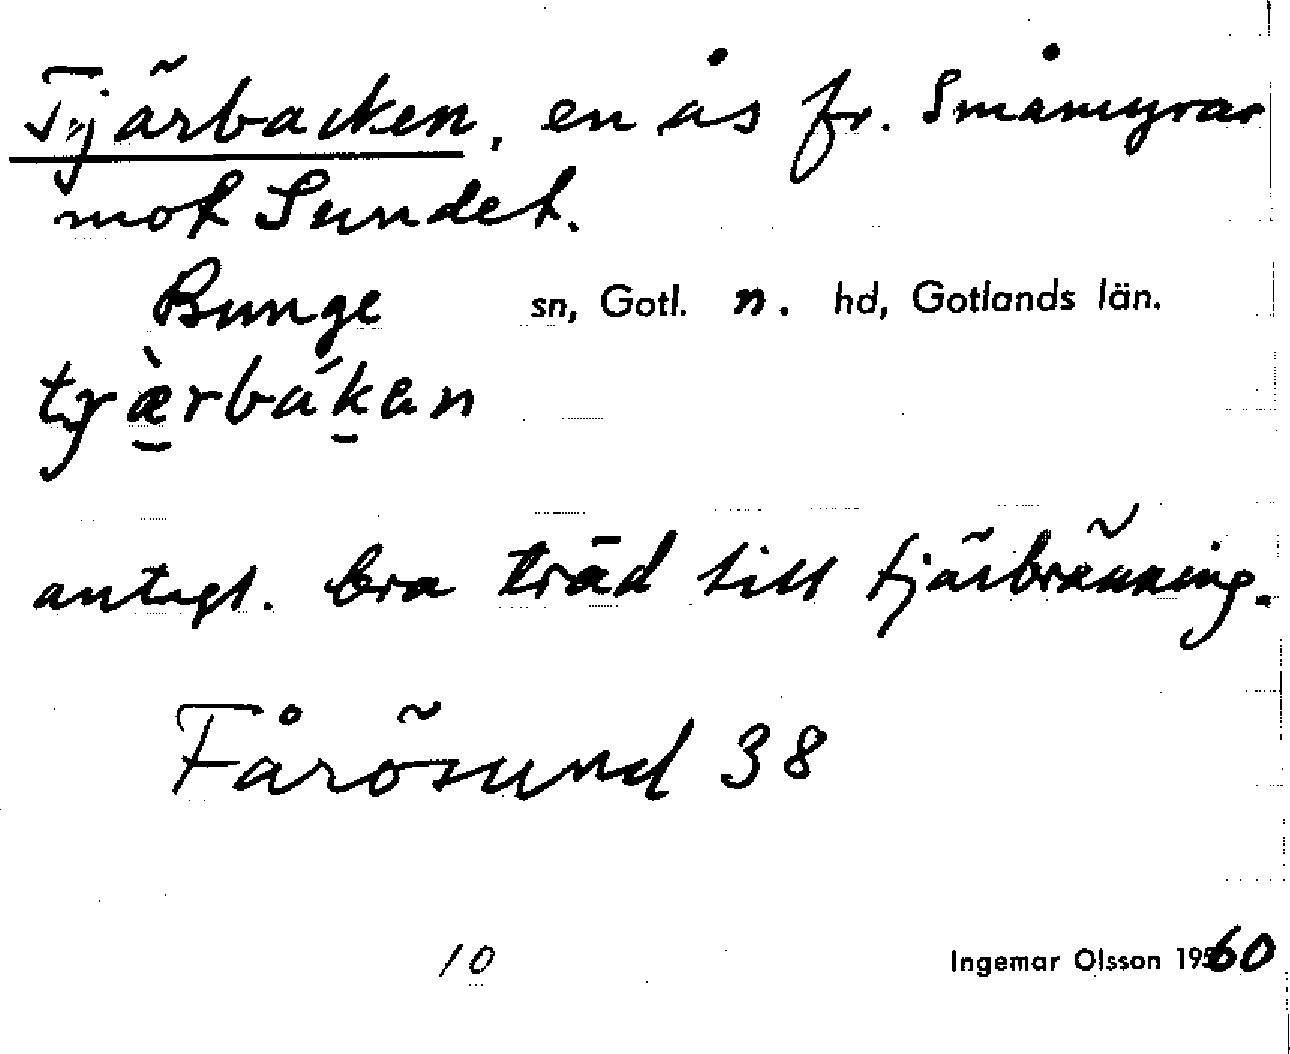 Tjärbacken, en ås fr. Småmyrar
mot Sundet.
Bunge sn, Gotl. n. hd, Gotlands län.
tjæ̀rbákan
antagl. bra träd till tjärbränning.
Fårösund 38
10
Ingemar Olsson 1960